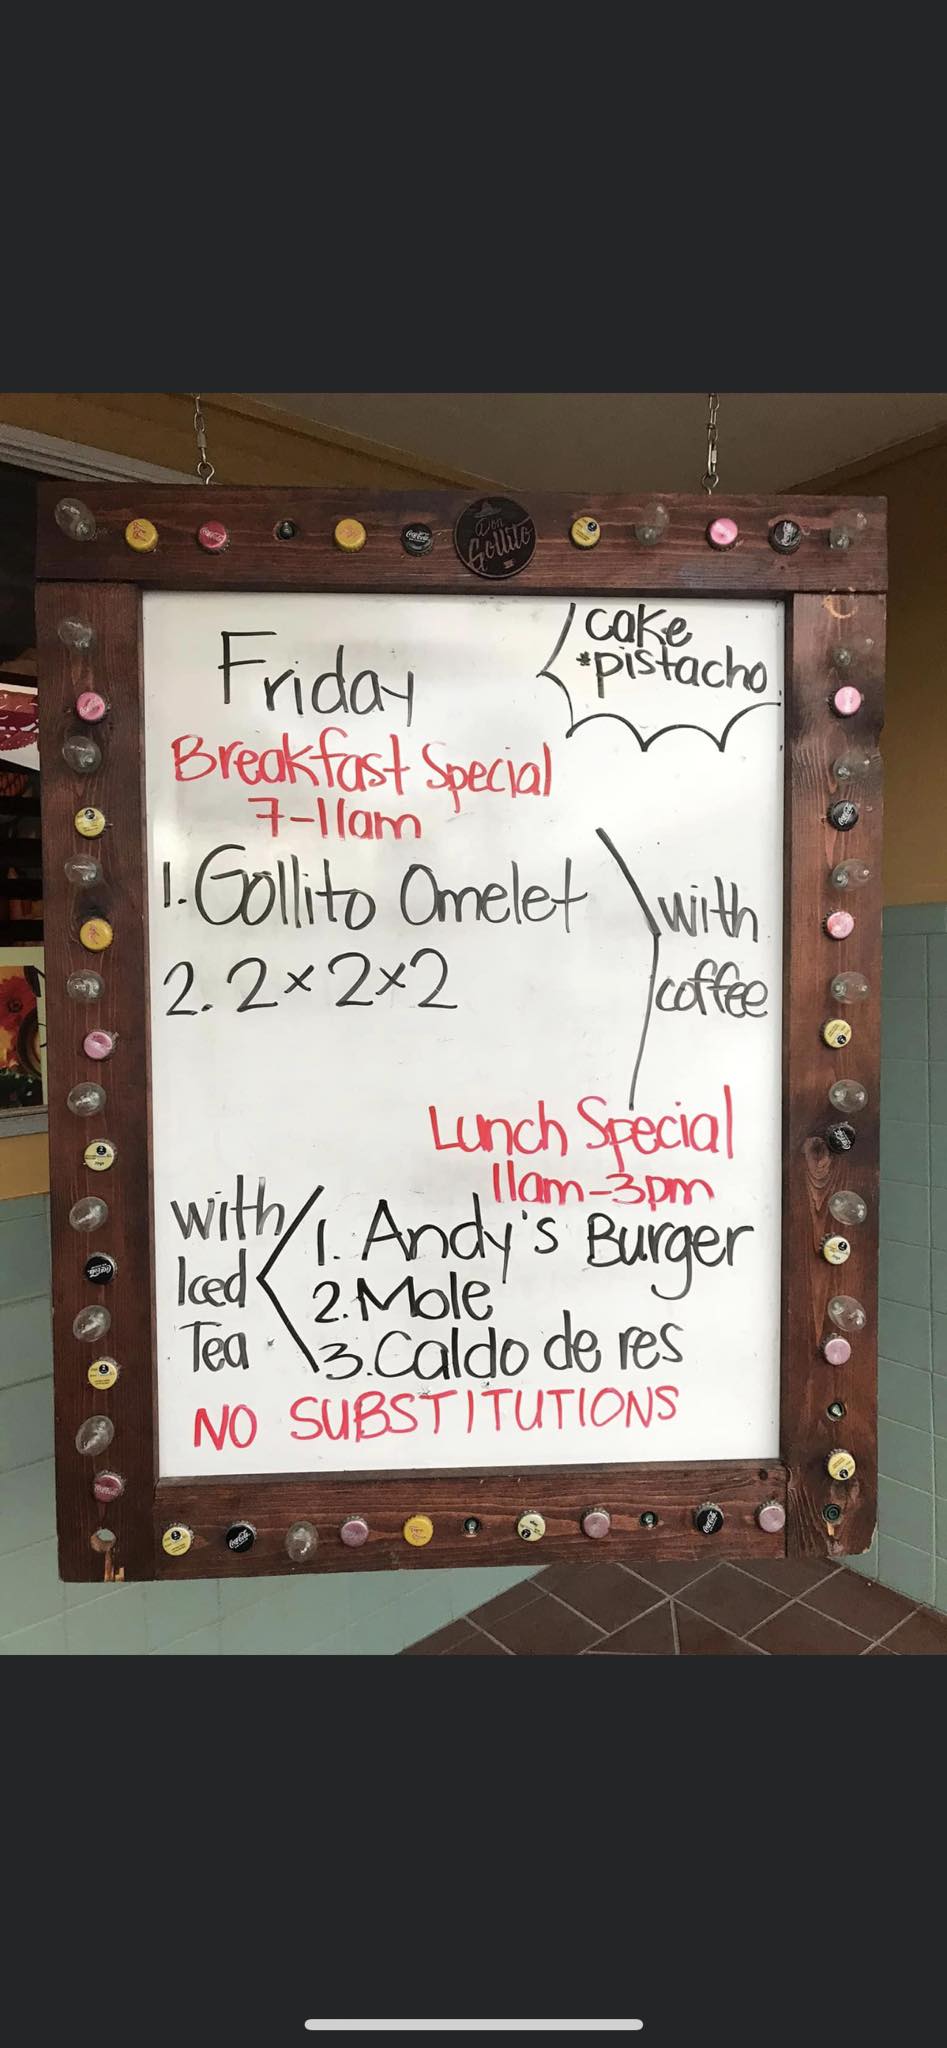 Don
Gollito
Friday
cake
*pistacho
Breakfast Special
7-11am
1. Gollito Omelet
2. 2x2x2
with
coffee
Lunch Special
11am-3pm
with
Iced
Tea
1. Andy's Burger
2. Mole
3. Caldo de res
NO SUBSTITUTIONS
Coca-Cola